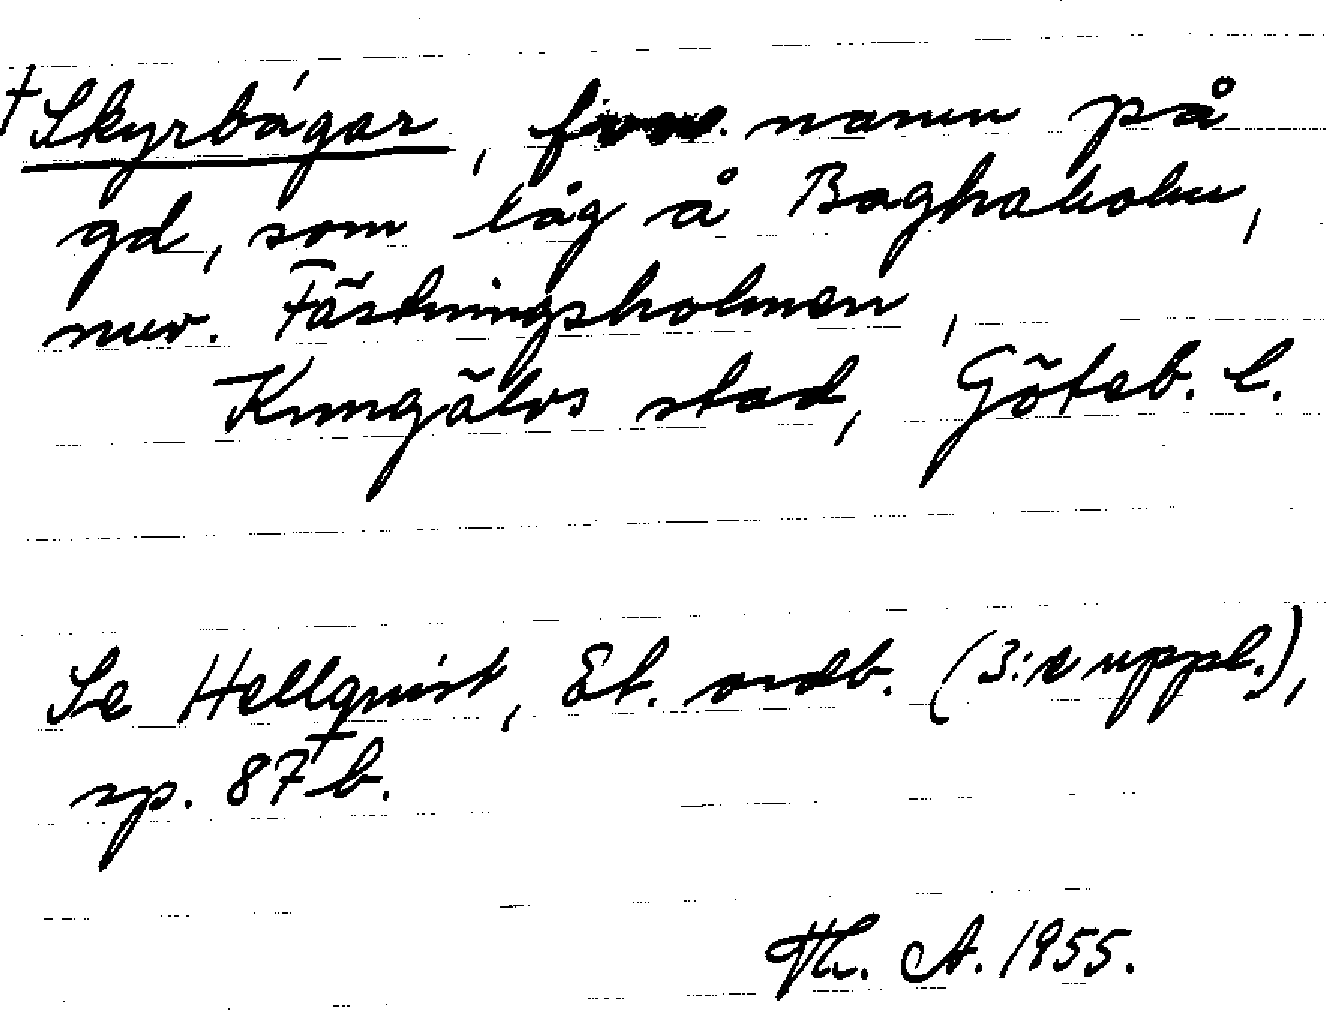 † Skyrbágar, forn. namn på
gd, som låg å Baghaholm,
nuv. Fästningsholmen,
Kungälvs stad, Göteb. l.
Se Hellquist, Et. ordb. (3:e uppl.),
sp. 87 b.
Th. A. 1955.